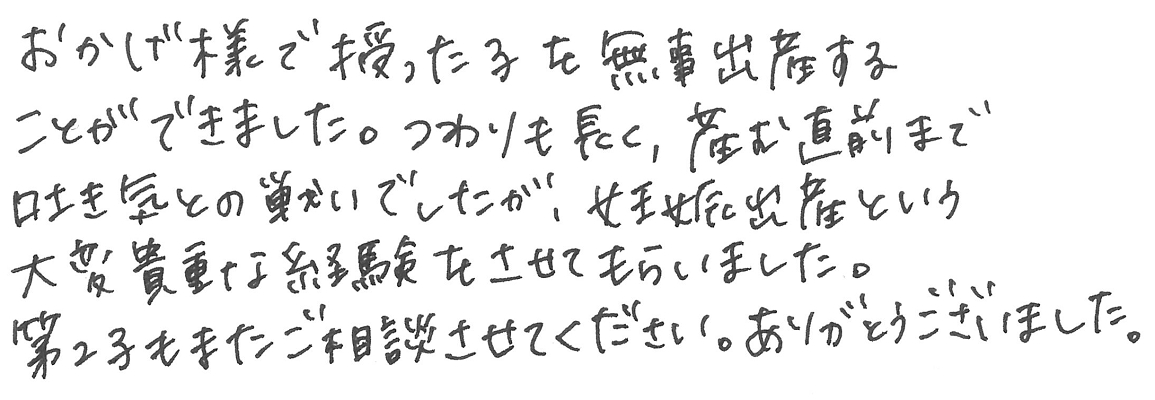 おかげ様で授った子を無事出産する
ことができました。つわりも長く、産む直前まで
吐き気との戦いでしたが、妊娠出産という
大変貴重な経験をさせてもらいました。
第2子もまたご相談させてください。ありがとうございました。